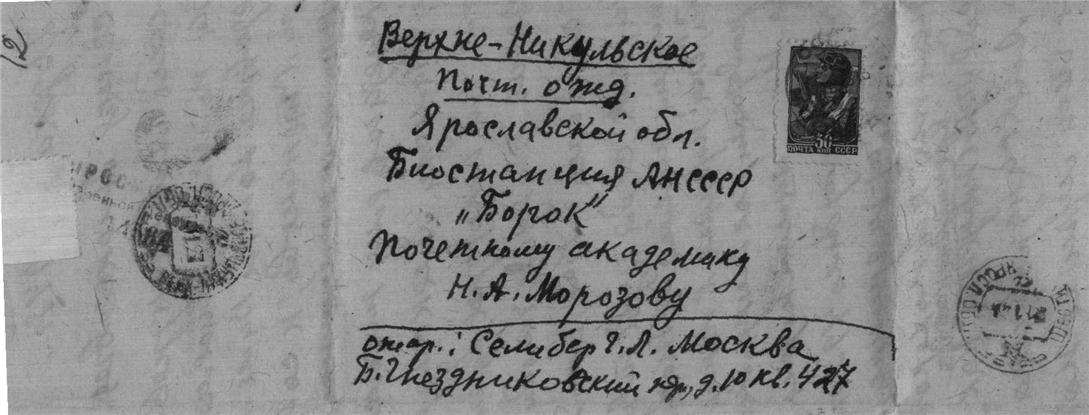 12
Верхне-Никульское
Почт. отд.
Ярославской обл.
Биостанция АНСССР
„Борок“
Почетному академику
Н.А. Морозову
отпр.: Селибер Г.Л. Москва
Б. Гнездниковский пер., д. 10 кв. 427
30
ПОЧТА КОП СССР